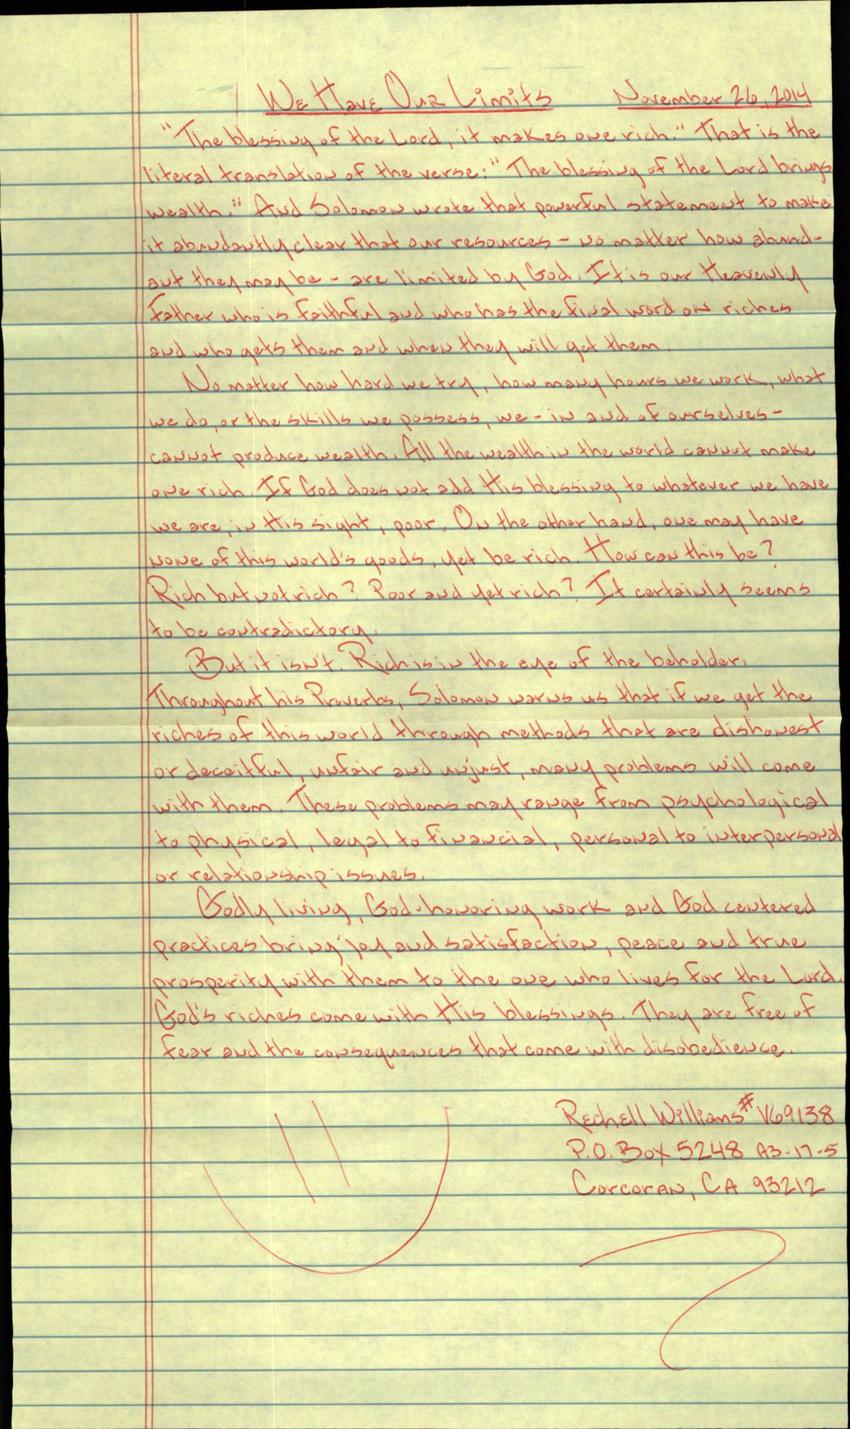 We Have Our Limits November 26, 2014
"The blessing of the Lord, it makes one rich." That is the
literal translation of the verse: "The blessing of the Lord brings
wealth." And Solomon wrote that powerful statement to make
it abundantly clear that our resources - no matter how abund-
ant they may be - are limited by God. It is our Heavenly
Father who is faithful and who has the final word on riches
and who gets them and when they will get them.
No matter how hard we try, how many hours we work, what
we do, or the skills we possess, we - in and of ourselves -
cannot produce wealth. All the wealth in the world cannot make
one rich. If God does not add His blessing to whatever we have
we are, in His sight, poor. On the other hand, one may have
none of this world's goods, yet be rich. How can this be?
Rich but not rich? Poor and yet rich? It certainly seems
to be contradictory.
But it isn't. Rich is in the eye of the beholder.
Throughout his Proverbs, Solomon warns us that if we get the
riches of this world through methods that are dishonest
or deceitful, unfair and unjust, many problems will come
with them. These problems may range from psychological
to physical, legal to financial, personal to interpersonal
or relationship issues.
Godly living, God-honoring work and God centered
practices bring joy and satisfaction, peace and true
prosperity with them to the one who lives for the Lord.
God's riches come with His blessings. They are free of
fear and the consequences that come with disobedience.
Rechell Williams # V69138
P.O. Box 5248 A3-17-5
Corcoran, CA 93212